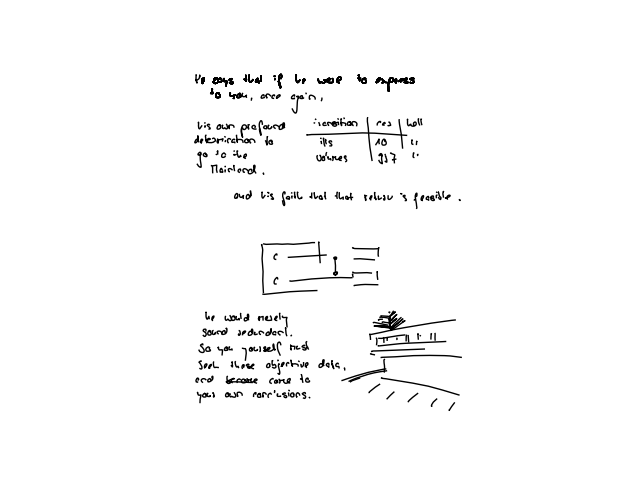 He says that if he were to express
to you, once again,
his own profound
determination to
go to the
Mainland.
transition | res | hall
ills | 10 | "
volumes | 937 | "
and his faith that that return is feasible.
c
c
he would merely
sound redundant.
So you yourself must
seek these objective data,
and because come to
your own conclusions.